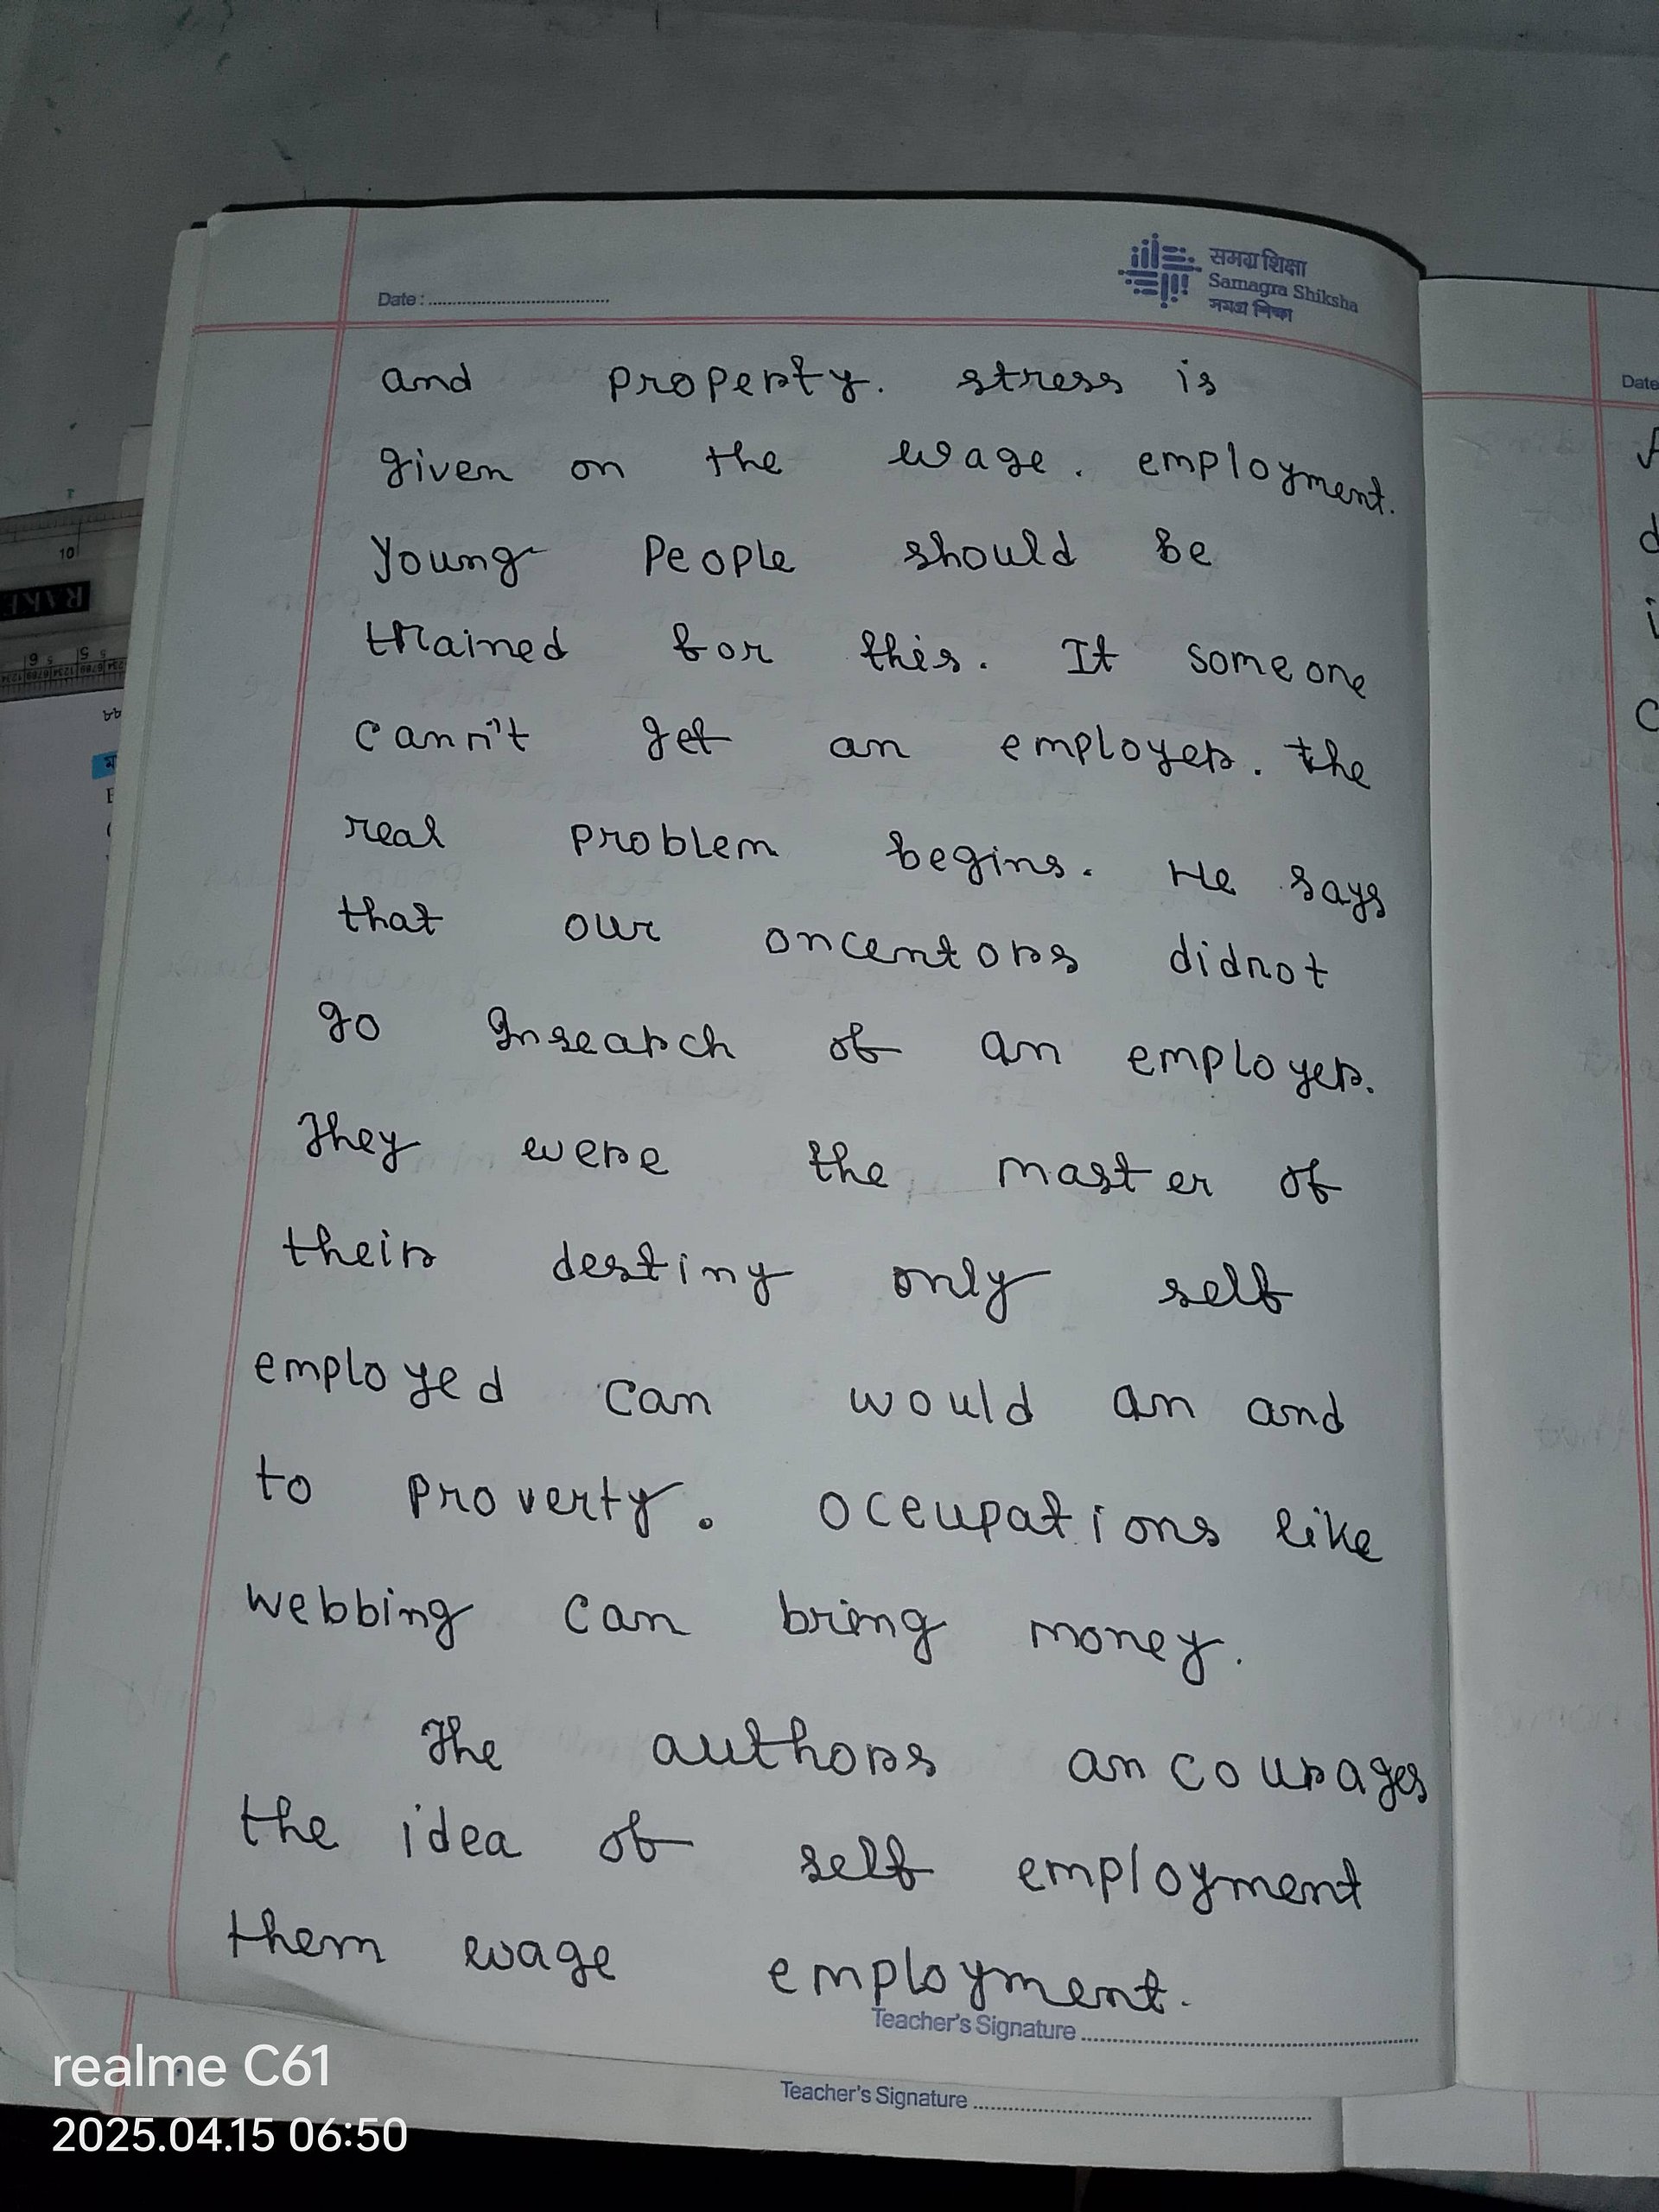 Date :
समग्र शिक्षा
Samagra Shiksha
and property. stress is
given on the wage. employment.
Young People should be
trained for this. It someone
cann't get an employer. the
real problem begins. He says
that our oncentors didnot
go Insearch of an employer.
They were the master of
their destiny only self
employed can would an and
to proverty. oceupations like
webbing can bring money.
The authors ancourages
the idea of self employment
them wage employment.
Teacher's Signature
Teacher's Signature
Date
10
realme C61
2025.04.15 06:50